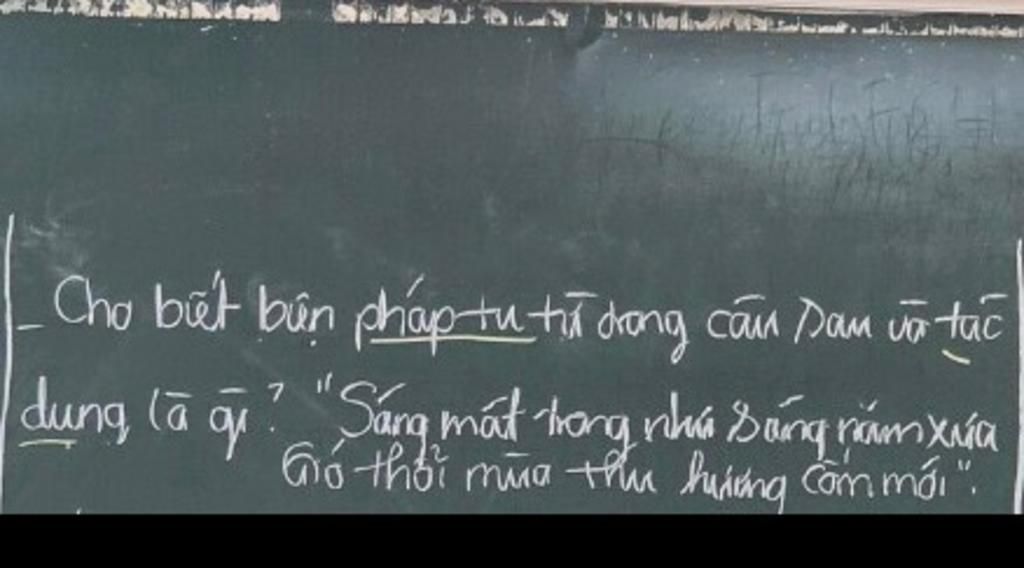 - Cho biết biện pháp tu từ trong câu sau và tác
dụng là gì? "Sáng mát trong như sáng năm xưa
Gió thổi mùa thu hương cốm mới".